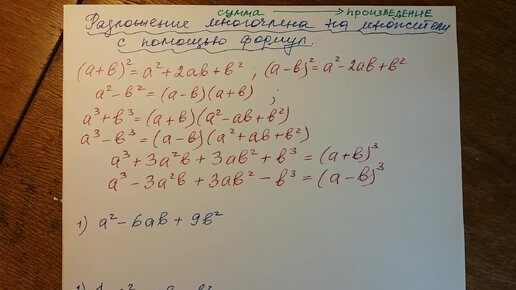 сумма → произведение
Разложение многочлена на множители
с помощью формул.
(a+b)² = a²+2ab+b² ; (a-b)² = a²-2ab+b²
a²-b² = (a-b)(a+b) ;
a³+b³ = (a+b)(a²-ab+b²)
a³-b³ = (a-b)(a²+ab+b²)
a³+3a²b+3ab²+b³ = (a+b)³
a³-3a²b+3ab²-b³ = (a-b)³
1) a²-6ab+9b²